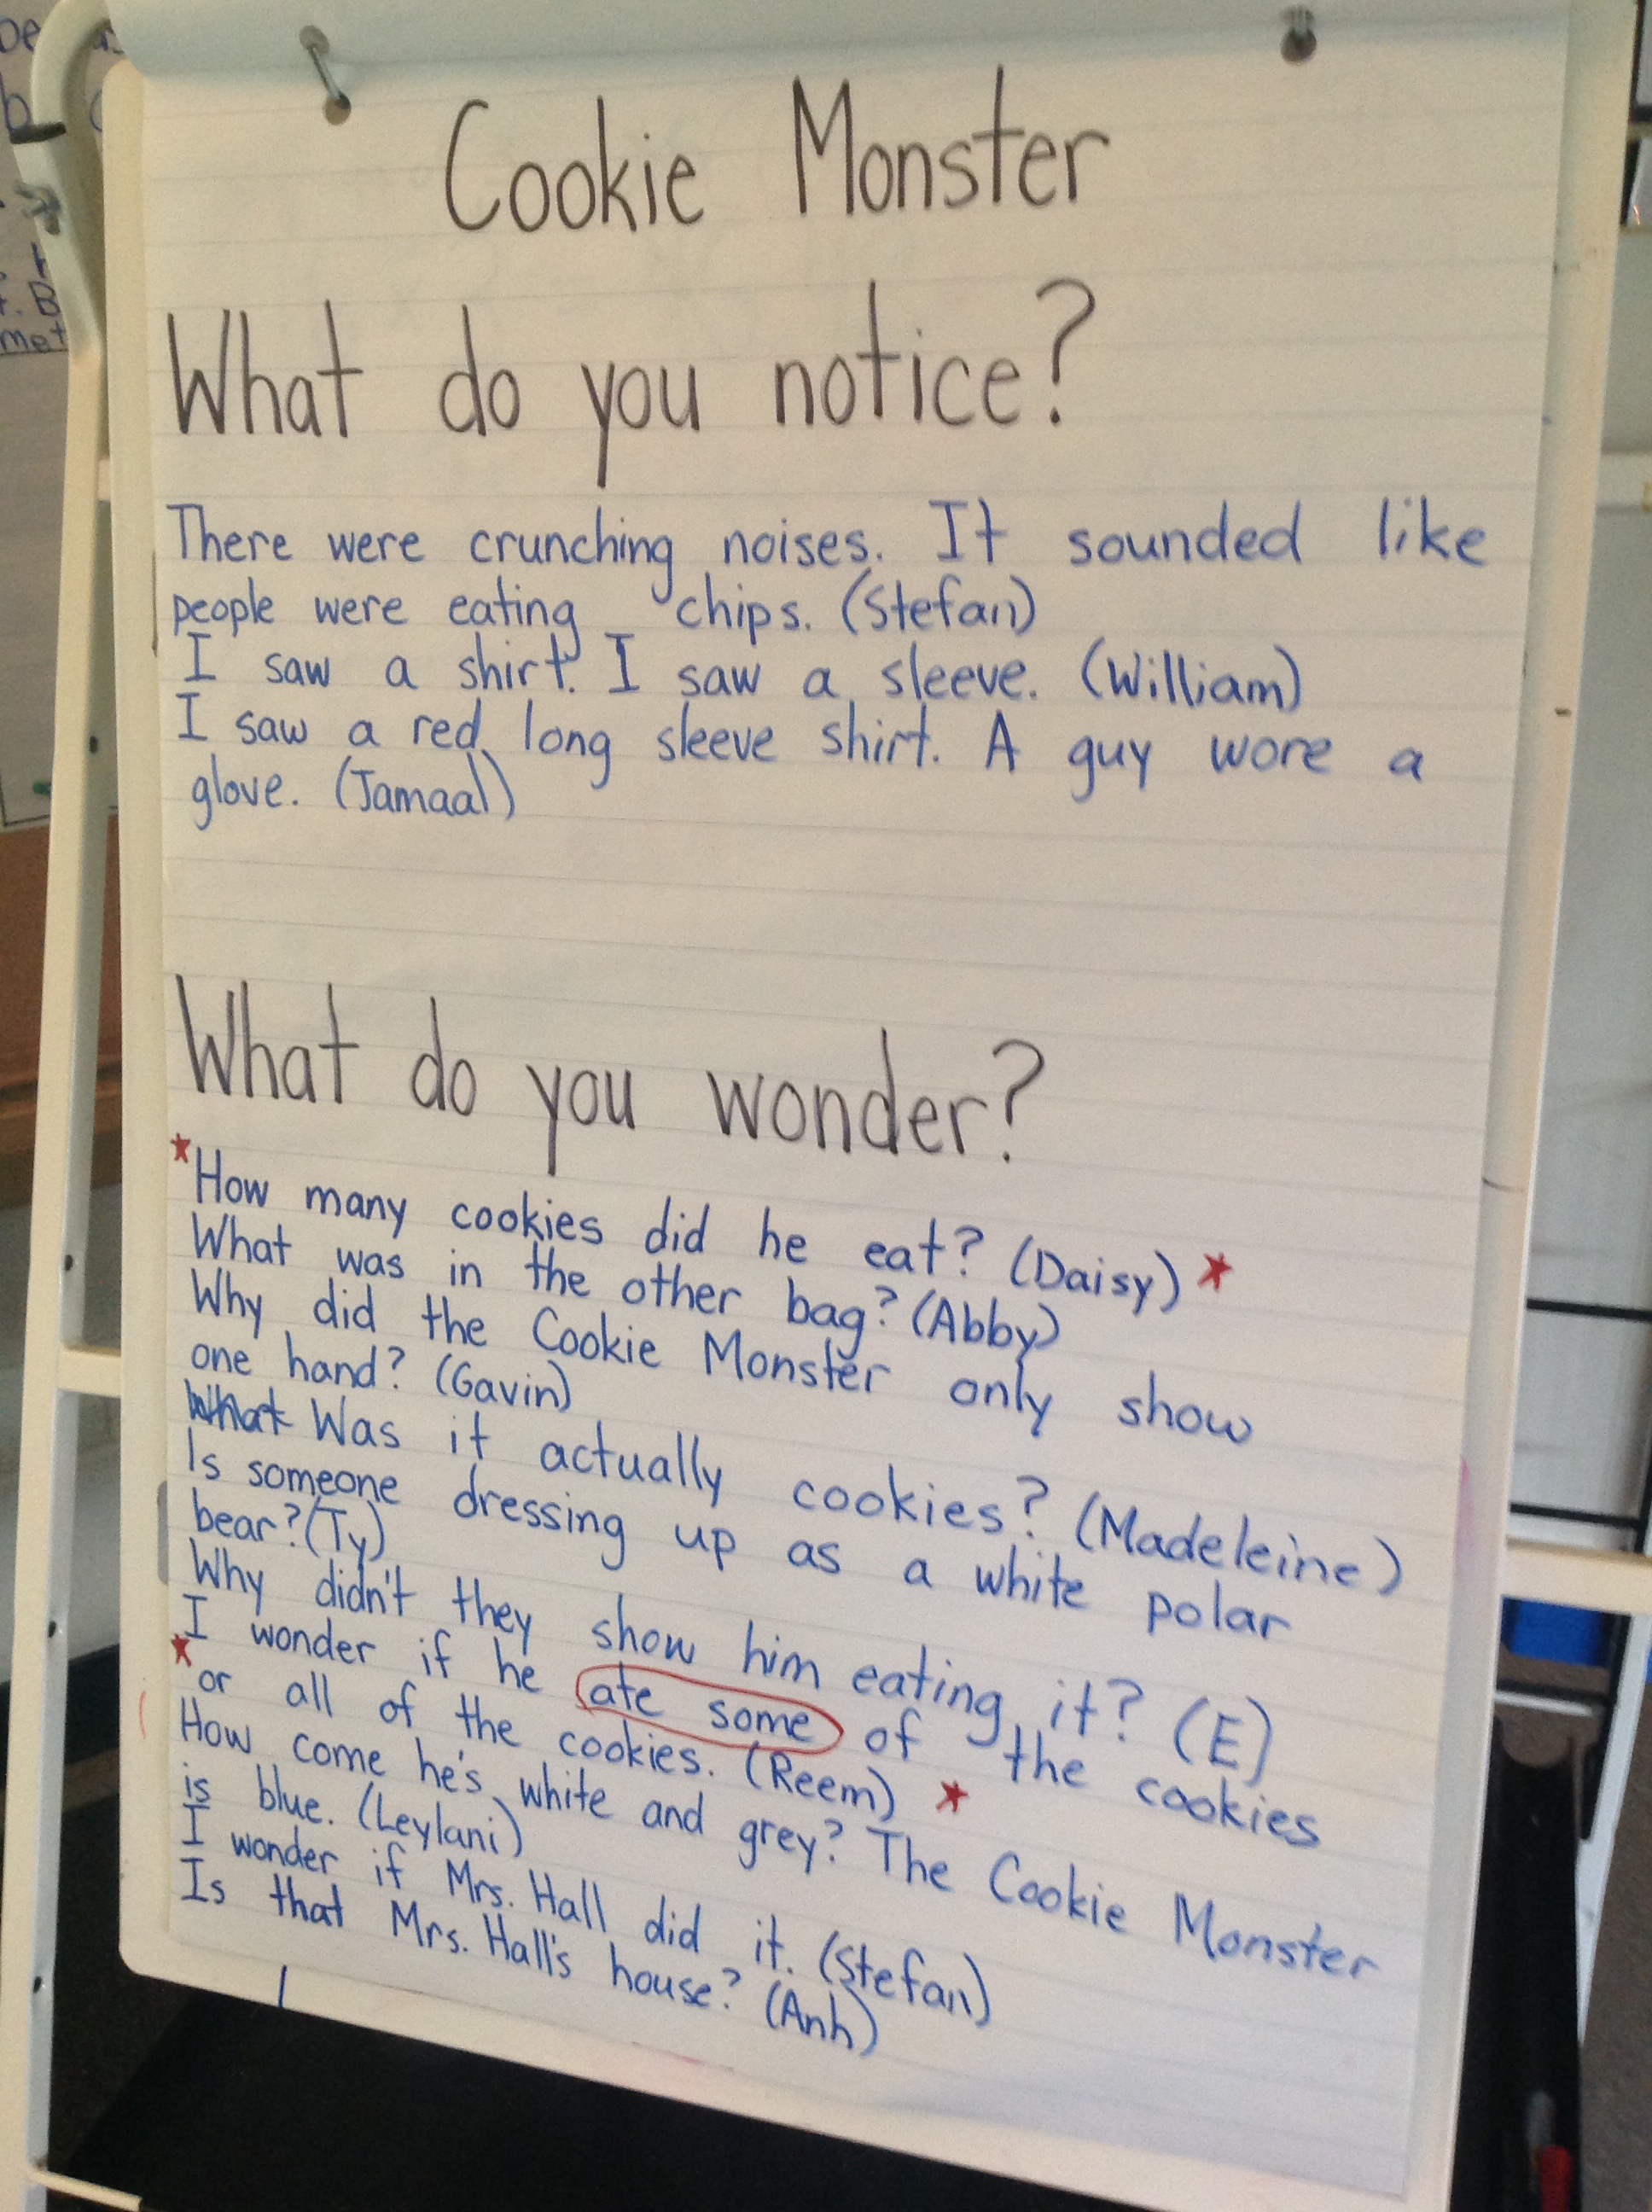 Cookie Monster
What do you notice?
There were crunching noises. It sounded like
people were eating chips. (Stefan)
I saw a shirt. I saw a sleeve. (William)
I saw a red long sleeve shirt. A guy wore a
glove. (Jamaal)
What do you wonder?
*How many cookies did he eat? (Daisy) *
What was in the other bag? (Abby)
Why did the Cookie Monster only show
one hand? (Gavin)
What Was it actually cookies? (Madeleine)
Is someone dressing up as a white polar
bear? (Ty)
Why didn't they show him eating it? (E)
I wonder if he ate some of the cookies
*or all of the cookies. (Reem) *
How come he's white and grey? The Cookie Monster
is blue. (Leylani)
I wonder if Mrs. Hall did it. (Stefan)
Is that Mrs. Hall's house? (Anh)